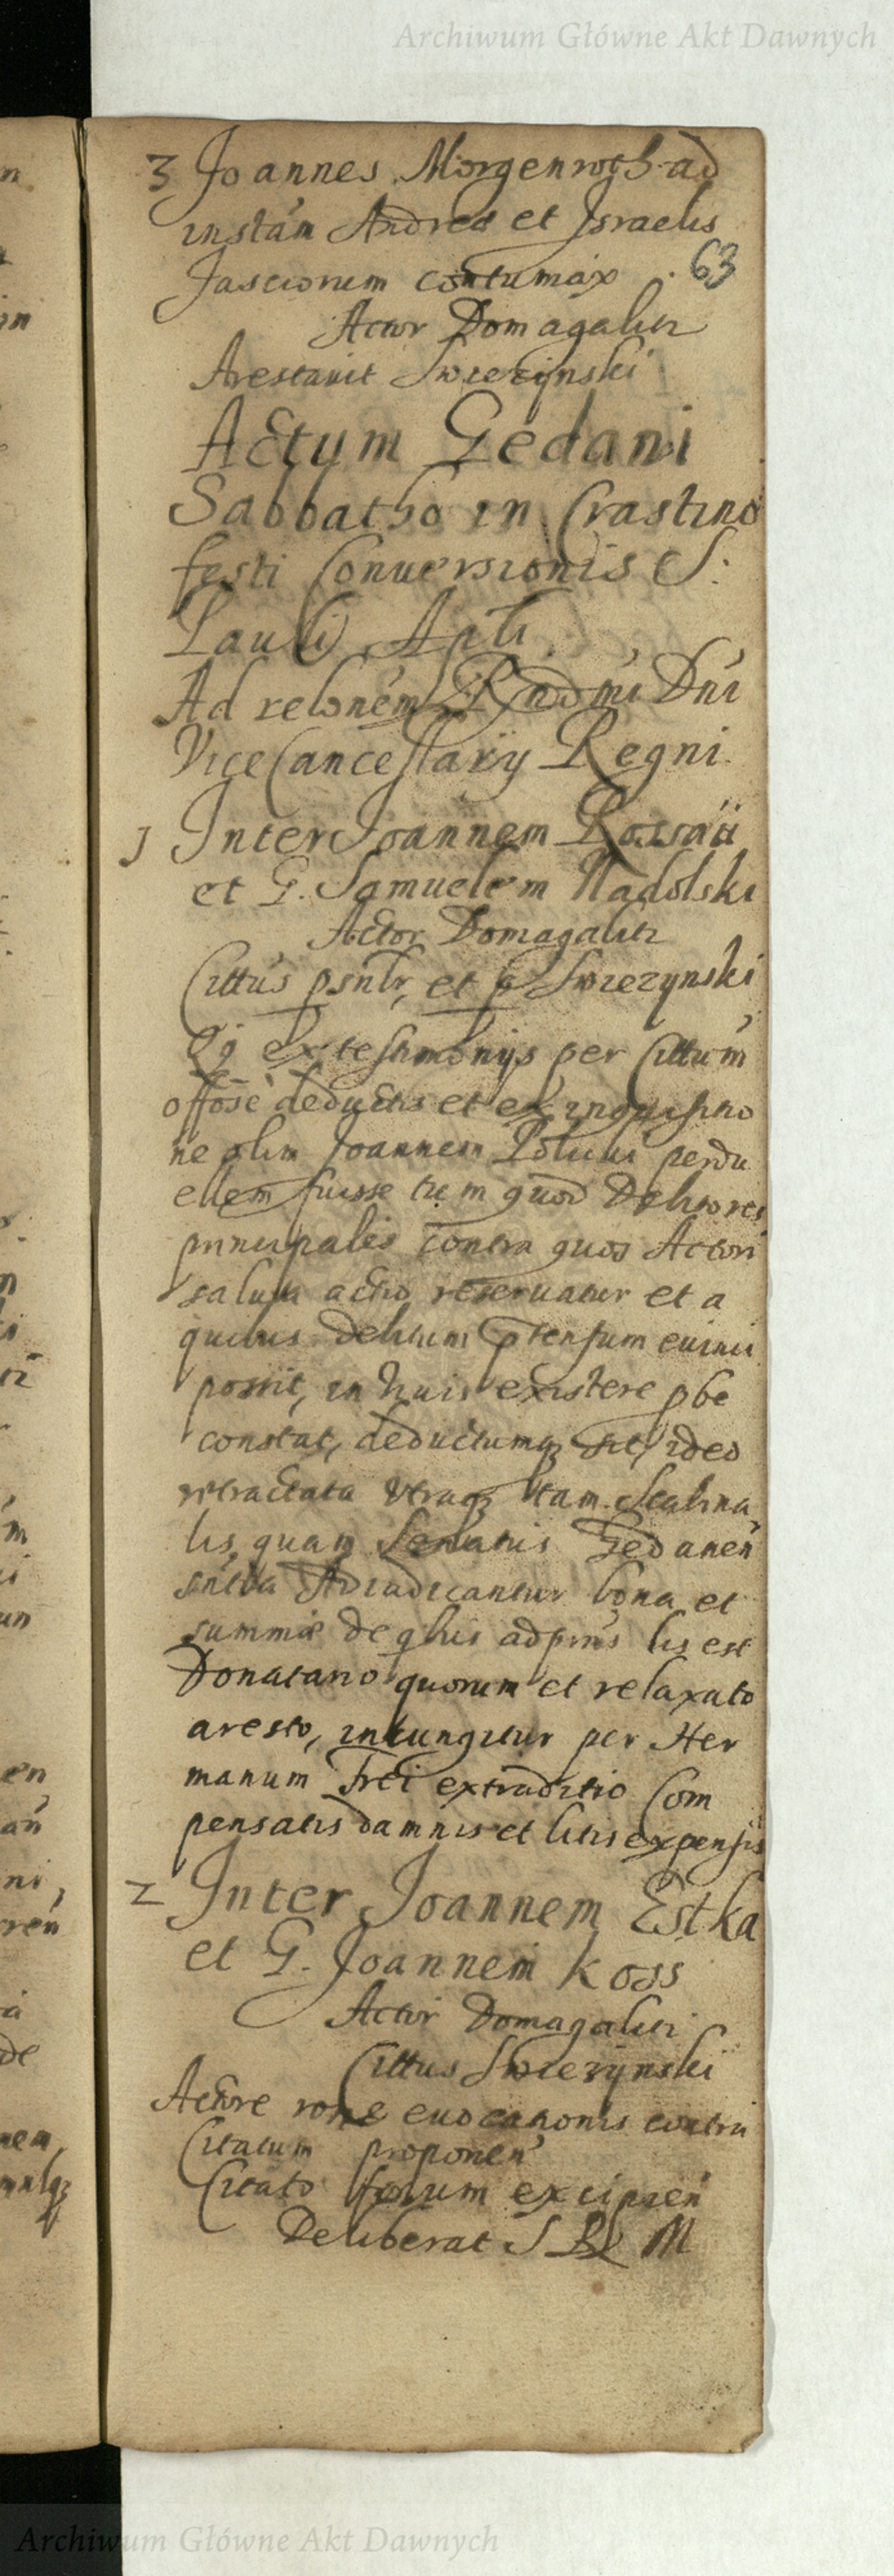 Archiwum Główne Akt Dawnych
3 Joannes Morgenroth ad
instan̄ Andreæ et Israelis
Jasciorum contumax
63
Actor Domagalicz
Arestavit Swiezynski
Actum Gedani
Sabbatho in Crastino
festi Conversionis S:
Pauli Apli
Ad relonem Rndmi Dni
ViceCancellarÿ Regni
1 Inter Joannem
et G. Samuelem Nadolski
Actor Domagalicz
Cittus psnlr, et p Swiezynski
Qz ex testimonijs per Cittum
offose deductis et ex inquisitio
ne olim Joannem perdu
ellem fuisse tum quod Debitores
principales contra quos Actori
salva actio reservatur et a
quibus debitum ptensum evinci
possit, in existere pbe
constat, deductumq sit, ideo
retractata utraq tam Scabina
lis quam Senatus Gedanen
sntia Adiudicantur bona et
summæ de qbus adpnus lis est
Donatario quorum et relaxato
aresto, iniungitur per Her
manum extraditio Com
pensatis damnis et litis expensis
2 Inter Joannem Estka
et G. Joannem Koss
Actor Domagalicz
Cittus Swiezynski
Actore rone evocationis contra
Citatum proponen
Citato forum excipien
Deliberat S R M
Archiwum Główne Akt Dawnych